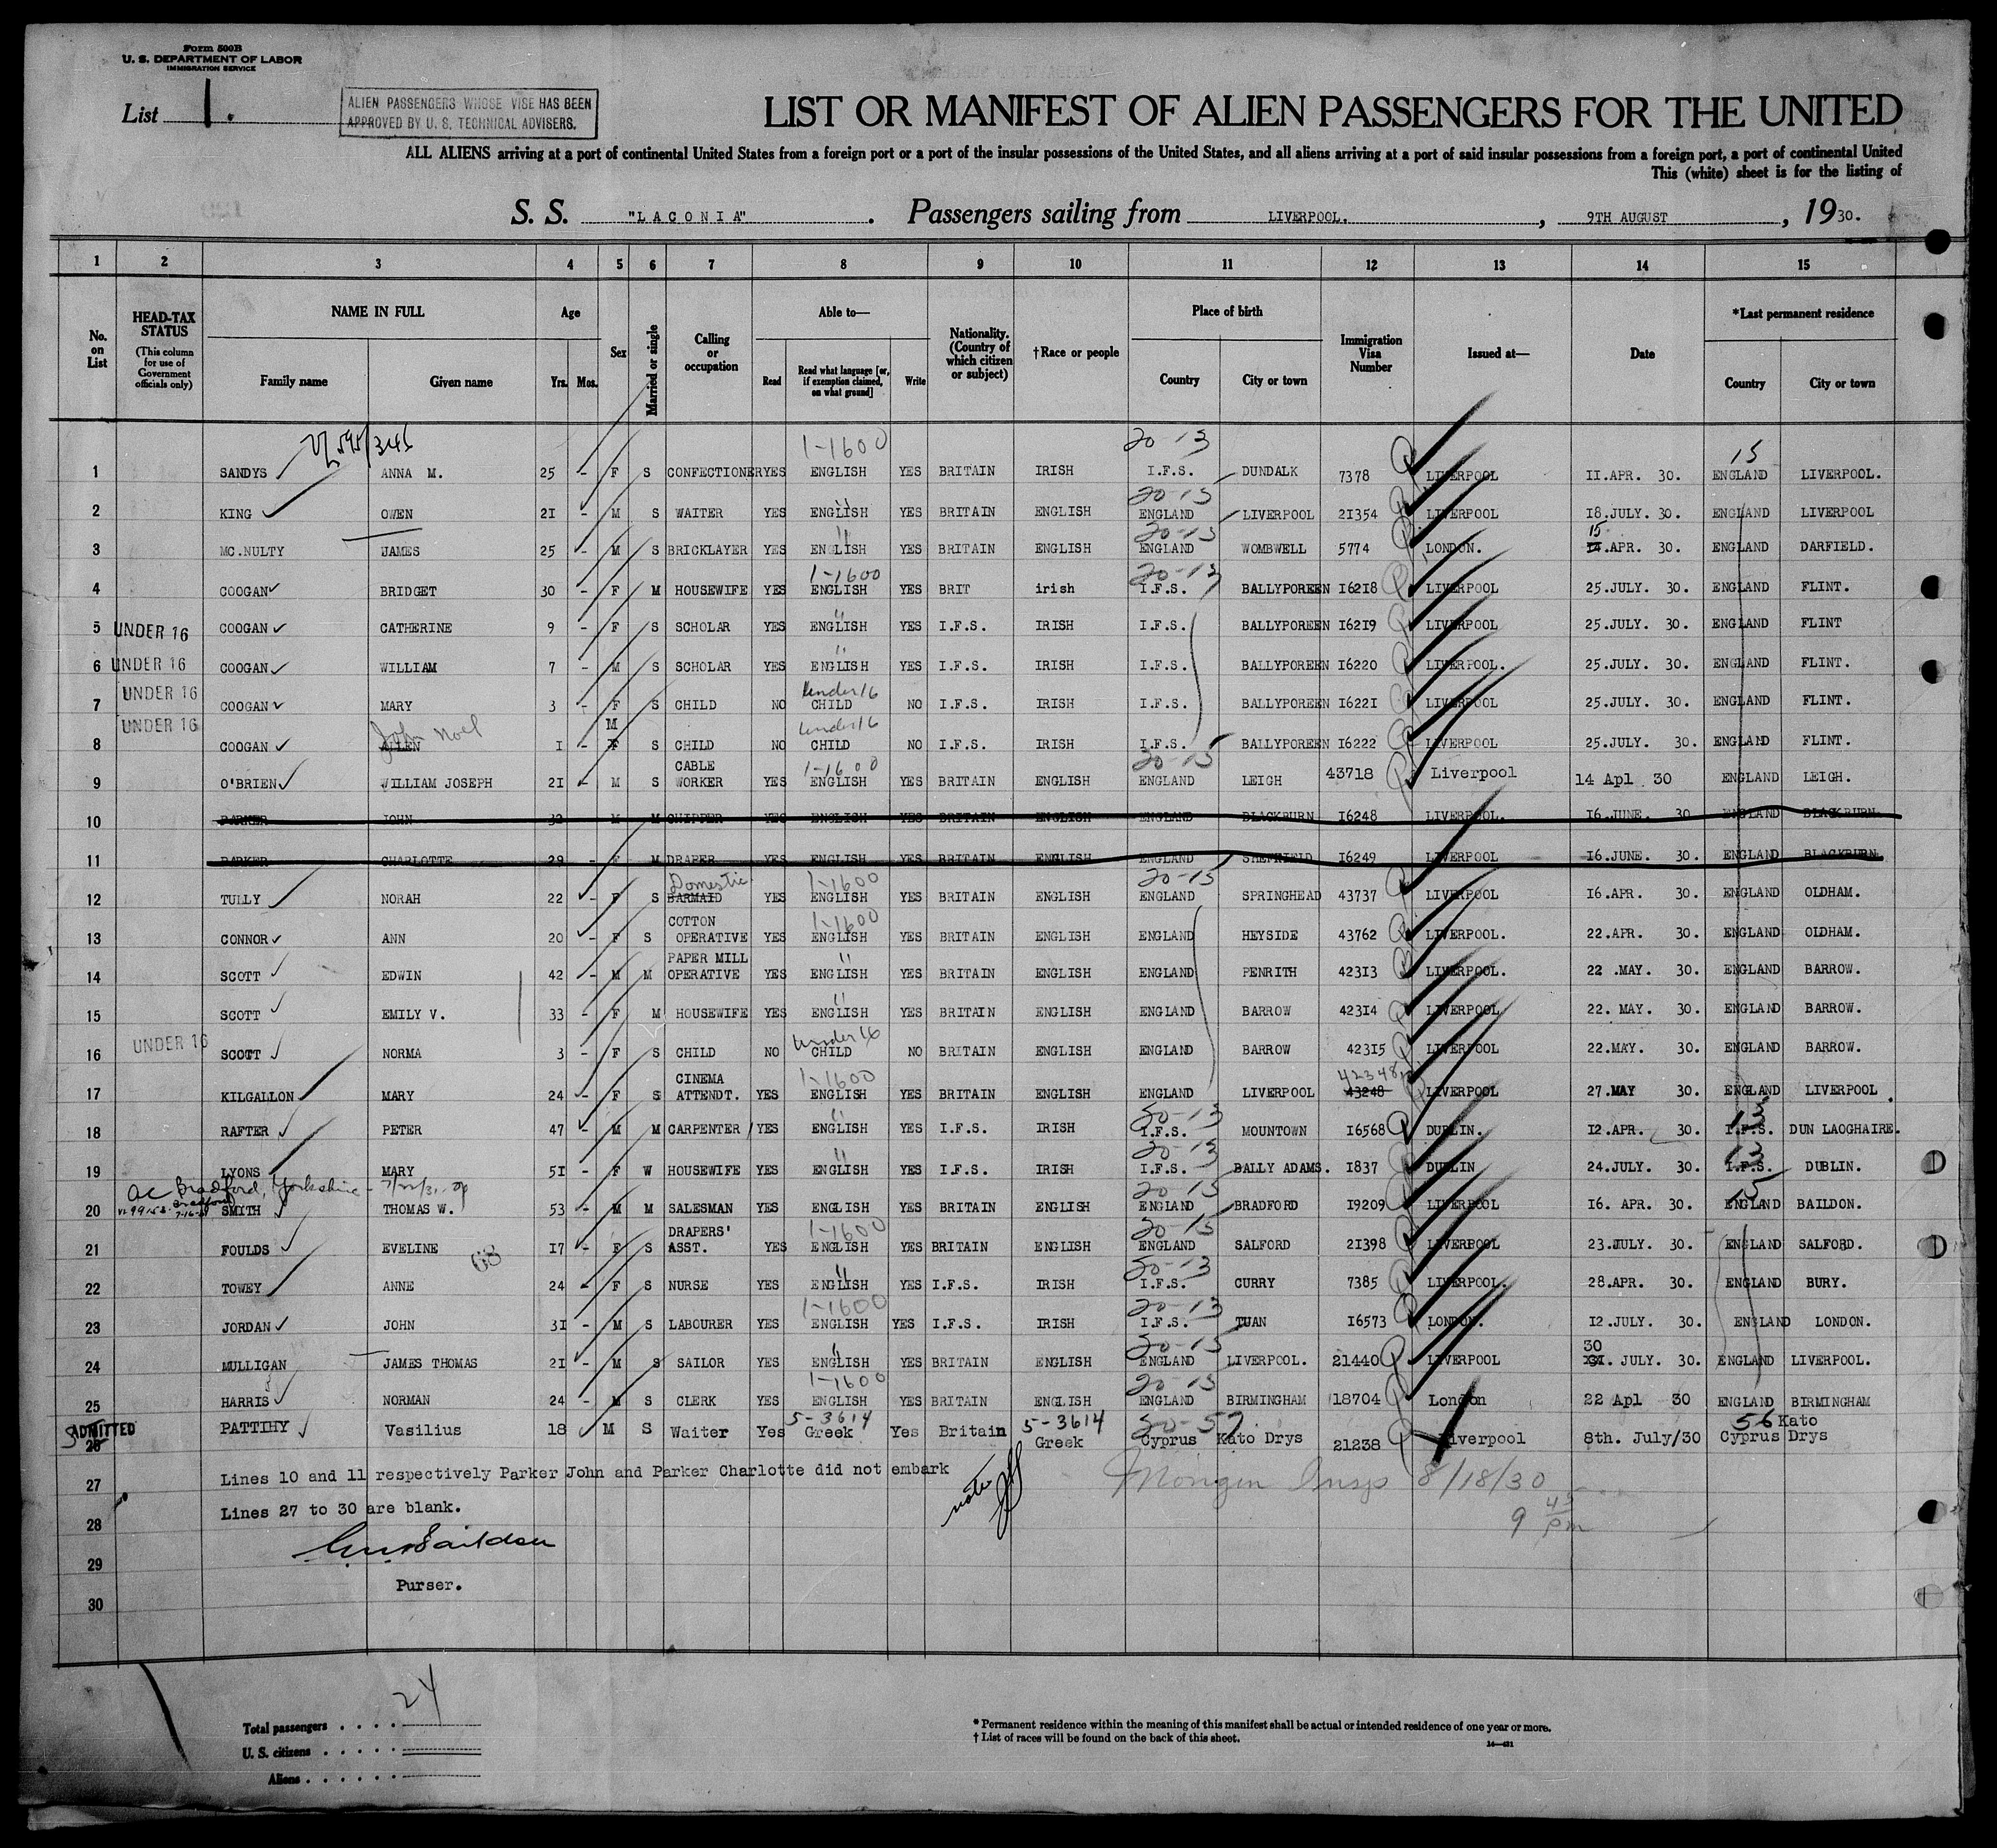 Form 500B
U. S. DEPARTMENT OF LABOR
IMMIGRATION SERVICE
List 1.
ALIEN PASSENGERS WHOSE VISE HAS BEEN
APPROVED BY U. S. TECHNICAL ADVISERS.
LIST OR MANIFEST OF ALIEN PASSENGERS FOR THE UNITED
ALL ALIENS arriving at a port of continental United States from a foreign port or a port of the insular possessions of the United States, and all aliens arriving at a port of said insular possessions from a foreign port, a port of continental United
This (white) sheet is for the listing of
S. S. "LACONIA". Passengers sailing from LIVERPOOL., 9TH AUGUST, 1930.
1 2 3 4 5 6 7 8 9 10 11 12 13 14 15
No. on List
HEAD-TAX STATUS (This column for use of Government officials only)
NAME IN FULL Family name Given name
Age Yrs. Mos.
Sex
Married or single
Calling or occupation
Able to— Read Read what language [or, if exemption claimed, on what ground] Write
Nationality. (Country of which citizen or subject)
†Race or people
Place of birth Country City or town
Immigration Visa Number
Issued at—
Date
*Last permanent residence Country City or town
1-1600 20-13 15
1 SANDYS ANNA M. 25 - F S CONFECTIONER YES ENGLISH YES BRITAIN IRISH I.F.S. DUNDALK 7378 LIVERPOOL 11.APR. 30. ENGLAND LIVERPOOL.
" 20-15
2 KING OWEN 21 - M S WAITER YES ENGLISH YES BRITAIN ENGLISH ENGLAND LIVERPOOL 21354 LIVERPOOL 18.JULY. 30. ENGLAND LIVERPOOL
" 20-15 15
3 MC.NULTY JAMES 25 - M S BRICKLAYER YES ENGLISH YES BRITAIN ENGLISH ENGLAND WOMBWELL 5774 LONDON. 14.APR. 30. ENGLAND DARFIELD.
1-1600 20-13
4 COOGAN BRIDGET 30 - F M HOUSEWIFE YES ENGLISH YES BRIT irish I.F.S. BALLYPOREEN 16218 LIVERPOOL 25.JULY. 30. ENGLAND FLINT.
5 UNDER 16 COOGAN CATHERINE 9 - F S SCHOLAR YES ENGLISH YES I.F.S. IRISH I.F.S. BALLYPOREEN 16219 LIVERPOOL 25.JULY. 30. ENGLAND FLINT
6 UNDER 16 COOGAN WILLIAM 7 - M S SCHOLAR YES ENGLISH YES I.F.S. IRISH I.F.S. BALLYPOREEN 16220 LIVERPOOL. 25.JULY. 30. ENGLAND FLINT.
Under 16
7 UNDER 16 COOGAN MARY 3 - F S CHILD NO CHILD NO I.F.S. IRISH I.F.S. BALLYPOREEN 16221 LIVERPOOL 25.JULY. 30. ENGLAND FLINT.
John Noel M Under 16
8 UNDER 16 COOGAN ALLEN 1 - F S CHILD NO CHILD NO I.F.S. IRISH I.F.S. BALLYPOREEN 16222 LIVERPOOL 25.JULY. 30. ENGLAND FLINT.
CABLE 1-1600 20-15
9 O'BRIEN WILLIAM JOSEPH 21 - M S WORKER YES ENGLISH YES BRITAIN ENGLISH ENGLAND LEIGH 43718 Liverpool 14 Apl 30 ENGLAND LEIGH.
10 PARKER JOHN 32 M M CHIPPER YES ENGLISH YES BRITAIN ENGLISH ENGLAND BLACKBURN 16248 LIVERPOOL. 16.JUNE. 30 ENGLAND BLACKBURN
11 PARKER CHARLOTTE 29 - F M DRAPER YES ENGLISH YES BRITAIN ENGLISH ENGLAND SHEFFIELD 16249 LIVERPOOL 16.JUNE. 30. ENGLAND BLACKBURN
Domestic 1-1600 20-15
12 TULLY NORAH 22 - F S BARMAID YES ENGLISH YES BRITAIN ENGLISH ENGLAND SPRINGHEAD 43737 LIVERPOOL 16.APR. 30. ENGLAND OLDHAM.
COTTON 1-1600
13 CONNOR ANN 20 - F S OPERATIVE YES ENGLISH YES BRITAIN ENGLISH ENGLAND HEYSIDE 43762 LIVERPOOL. 22.APR. 30. ENGLAND OLDHAM.
PAPER MILL
14 SCOTT EDWIN 42 - M M OPERATIVE YES ENGLISH YES BRITAIN ENGLISH ENGLAND PENRITH 42313 LIVERPOOL. 22 .MAY. 30. ENGLAND BARROW.
15 SCOTT EMILY V. 33 - F M HOUSEWIFE YES ENGLISH YES BRITAIN ENGLISH ENGLAND BARROW 42314 LIVERPOOL 22. MAY. 30. ENGLAND BARROW.
Under 16
16 UNDER 16 SCOTT NORMA 3 - F S CHILD NO CHILD NO BRITAIN ENGLISH ENGLAND BARROW 42315 LIVERPOOL 22.MAY. 30. ENGLAND BARROW.
CINEMA 1-1600 42348
17 KILGALLON MARY 24 - F S ATTENDT. YES ENGLISH YES BRITAIN ENGLISH ENGLAND LIVERPOOL 43248 LIVERPOOL 27.MAY 30. ENGLAND LIVERPOOL.
20-13 13
18 RAFTER PETER 47 - M M CARPENTER YES ENGLISH YES I.F.S. IRISH I.F.S. MOUNTOWN 16568 DUBLIN. 12.APR. 30. I.F.S. DUN LAOGHAIRE.
20-13 13
19 LYONS MARY 51 - F W HOUSEWIFE YES ENGLISH YES I.F.S. IRISH I.F.S. BALLY ADAMS. 1837 DUBLIN 24.JULY. 30. I.F.S. DUBLIN.
Bradford, Yorkshire 20-15 15
20 SMITH THOMAS W. 53 - M M SALESMAN YES ENGLISH YES BRITAIN ENGLISH ENGLAND BRADFORD 19209 LIVERPOOL 16. APR. 30. ENGLAND BAILDON.
DRAPERS' 1-1600 20-15
21 FOULDS EVELINE 17 - F S ASST. YES ENGLISH YES BRITAIN ENGLISH ENGLAND SALFORD 21398 LIVERPOOL 23.JULY. 30. ENGLAND SALFORD.
68 20-13
22 TOWEY ANNE 24 - F S NURSE YES ENGLISH YES I.F.S. IRISH I.F.S. CURRY 7385 LIVERPOOL. 28.APR. 30. ENGLAND BURY.
1-1600 20-13
23 JORDAN JOHN 31 - M S LABOURER YES ENGLISH YES I.F.S. IRISH I.F.S. TUAN 16573 LONDON. 12.JULY. 30. ENGLAND LONDON.
20-15 30
24 MULLIGAN JAMES THOMAS 21 - M S SAILOR YES ENGLISH YES BRITAIN ENGLISH ENGLAND LIVERPOOL. 21440 LIVERPOOL 31. JULY. 30. ENGLAND LIVERPOOL.
1-1600 20-15
25 HARRIS NORMAN 24 - M S CLERK YES ENGLISH YES BRITAIN ENGLISH ENGLAND BIRMINGHAM 18704 London 22 Apl 30 ENGLAND BIRMINGHAM
ADMITTED 5-3614 5-3614 20-57 56 Kato
26 PATTIHY Vasilius 18 M S Waiter Yes Greek Yes Britain Greek Cyprus Kato Drys 21238 Liverpool 8th. July/30 Cyprus Drys
27 Lines 10 and 11 respectively Parker John and Parker Charlotte did not embark
note
Insp 8/18/30
28 Lines 27 to 30 are blank.
9 45 pm
29
Purser.
30
Total passengers . . . . 24
U. S. citizens . . . . .
Aliens . . . . . .
* Permanent residence within the meaning of this manifest shall be actual or intended residence of one year or more.
† List of races will be found on the back of this sheet.